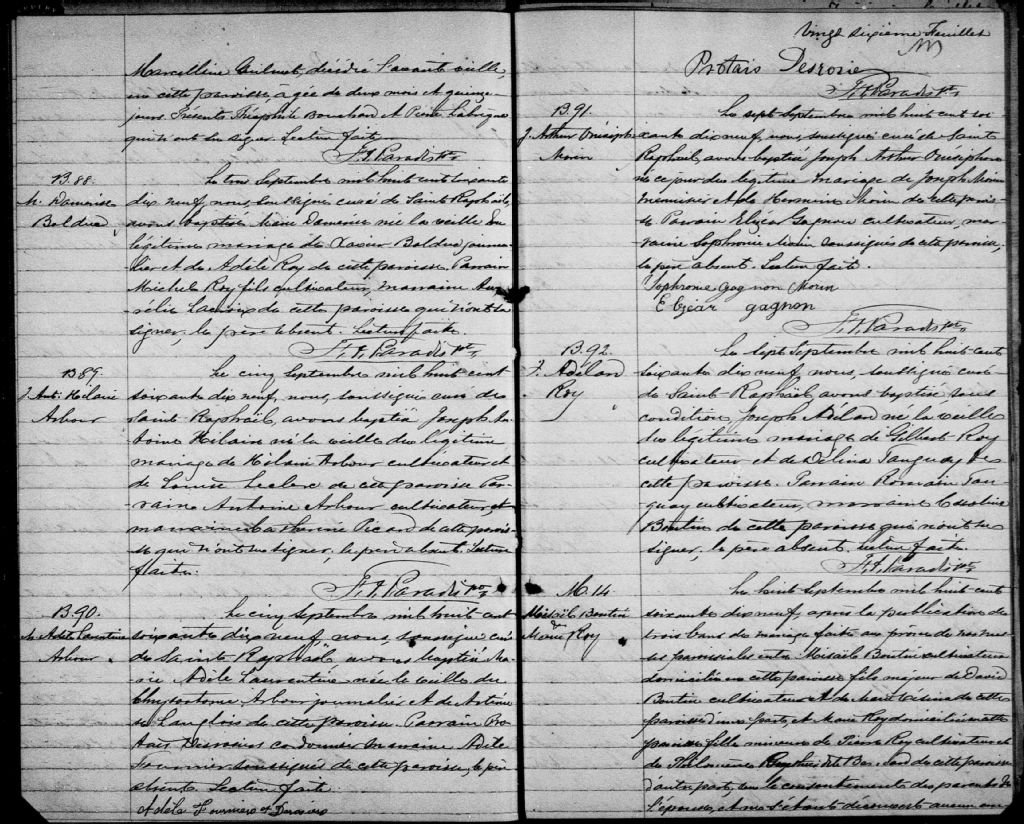 Marcelline Guilmet, décédée l'avant veille
en cette paroisse, agée de deux mois et quinze
jours. Présents Théophile Bouchard et Pierre Labrique
qui n'ont su signer. Lecture faite
F. A. Paradis Ptre
B. 88.
M. Damerise
Bolduc
Le trois Septembre mil huit cent soixante
dix neuf, nous, soussigné curé de Saint-Raphaël,
avons baptisé Marie Damerise née la veille du
légitime mariage de Xavier Bolduc, journa-
lier et de Adèle Roy de cette paroisse. Parrain
Michel Roy fils cultivateur, marraine Au-
rélie de cette paroisse qui n'ont su
signer, le père absent. Lecture faite.
F. A. Paradis Ptre
B 89.
J. Ant. Hilaire
Arbour
Le cinq Septembre mil huit cent
soixante dix neuf, nous, soussigné curé de
Saint-Raphaël, avons baptisé Joseph An-
toine Hilaire né la veille du légitime
mariage de Hilaire Arbour cultivateur et
de Louise Leclerc de cette paroisse. Par-
rain Antoine Arbour cultivateur et
marraine Catherine Picard de cette parois-
se qui n'ont su signer, le père absent. Lecture
faite.
F. A. Paradis Ptre
B. 90
M. Adèle Laurentine
Arbour
Le cinq Septembre mil huit cent
soixante dix neuf, nous, soussigné curé
de Saint-Raphaël, avons baptisé Ma-
rie Adèle Laurentine née la veille du
Chrysostome Arbour journalier et de Arténi-
se Langlois de cette paroisse. Parrain Pro-
tais Desrosiers cordonnier marraine Adèle
Fournier soussignés de cette paroisse, le père
absent. Lecture faite
Adèle Fournier
Vingt sixième Feuillet
Protais Desrosie
F. A. Paradis Ptre
B. 91.
J. Arthur Onésiphore
Morin
Le sept Septembre mil huit cent soi-
xante dix neuf, nous, soussigné curé de Saint
Raphaël, avons baptisé Joseph Arthur Onésiphore
né ce jour du légitime mariage de Joseph Morin
menuisier et de Hermine Morin de cette parois-
se Parrain Elzéar Gagnon cultivateur, mar-
raine Sophronie Morin soussignés de cette paroisse,
le père absent. Lecture faite.
Sophronie gagnon Morin
Elzéar gagnon
F. A. Paradis Ptre
B. 92.
J. Adéland
Roy
Le sept Septembre mil huit cent
soixante dix neuf, nous, soussigné curé
de Saint-Raphaël, avons baptisé sous
condition Joseph Adéland né la veille
du légitime mariage de Gilbert Roy
cultivateur et de Délina Tanguay de
cette paroisse. Parrain Romain Tan-
guay cultivateur, marraine Célestine
Boutin de cette paroisse qui n'ont su
signer, le père absent. Lecture faite.
F. A. Paradis Ptre
M. 14
Misaël Boutin
&
Marie Roy
Le huit Septembre mil huit cent
soixante dix neuf, après la publication de
trois bans de mariage faite au prône de nos mes-
ses paroissiales entre Misaël Boutin cultivateur
domicilié en cette paroisse fils majeur de David
Boutin cultivateur et de de cette
paroisse d'une part, et Marie Roy domiciliée en cette
paroisse fille mineure de Pierre Roy cultivateur et
de Philomène de cette paroisse
d'autre part, vu le consentement des parents de
l'épouse, et ne s'étant découvert aucun em